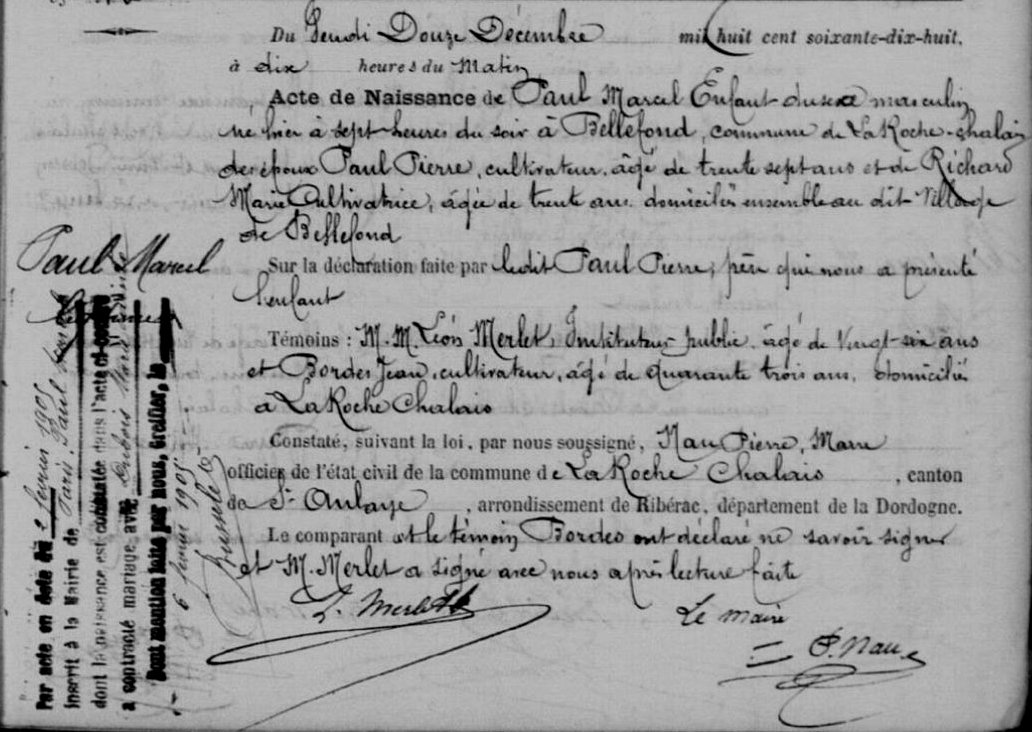 Du Jeudi Douze Décembre mil huit cent soixante-dix-huit,
à dix heures du Matin
Acte de Naissance de Paul Marcel Enfant du sexe masculin
né hier à sept heures du soir à Bellefond, commune de LaRoche-chalais
des époux Paul Pierre, cultivateur, âgé de trente sept ans et de Richard
Marie Cultivatrice, âgée de trente ans domiciliés ensemble au dit Village
de Bellefond
Sur la déclaration faite par ledit Paul Pierre, père qui nous a présenté
l'enfant
Témoins : M. M. Léon Merlet, Instituteur public, âgé de Vingt-six ans
et Bordes Jean, cultivateur, âgé de quarante trois ans, domiciliés
à LaRoche Chalais
Constaté, suivant la loi, par nous soussigné, Nau Pierre, Maire
officier de l'état civil de la commune de LaRoche Chalais, canton
de St Aulaye, arrondissement de Ribérac, département de la Dordogne.
Le comparant et le témoin Bordes ont déclaré ne savoir signer
et M. Merlet a signé avec nous après lecture faite
L. Merlet
Le maire
P. Nau
Paul Marcel
Par acte en date du 2 février 1905
inscrit à la Mairie de Paris, Paul
dont la naissance est constatée dans l'acte ci-contre
a contracté mariage avec Dubois
Dont mention faite par nous, Greffier, le
6 1905